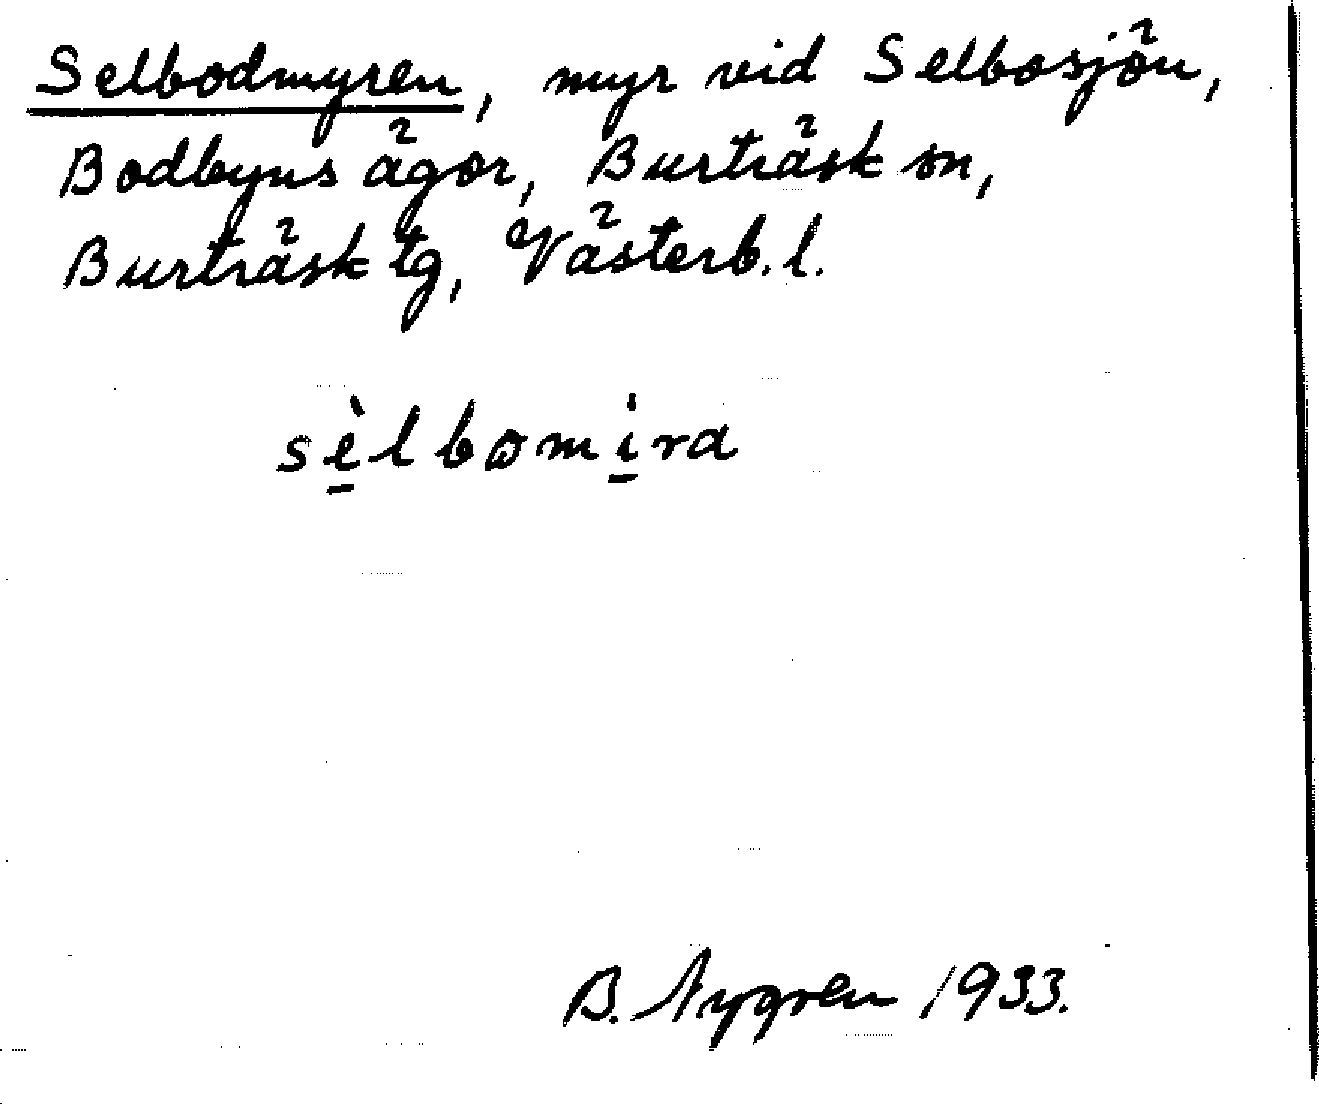 Selbodmyren, myr vid Selbosjön,
Bodbyns ägor, Burträsk sn,
Burträsk tg, Västerb. l.
sèlbomira
B. Nygren 1933.